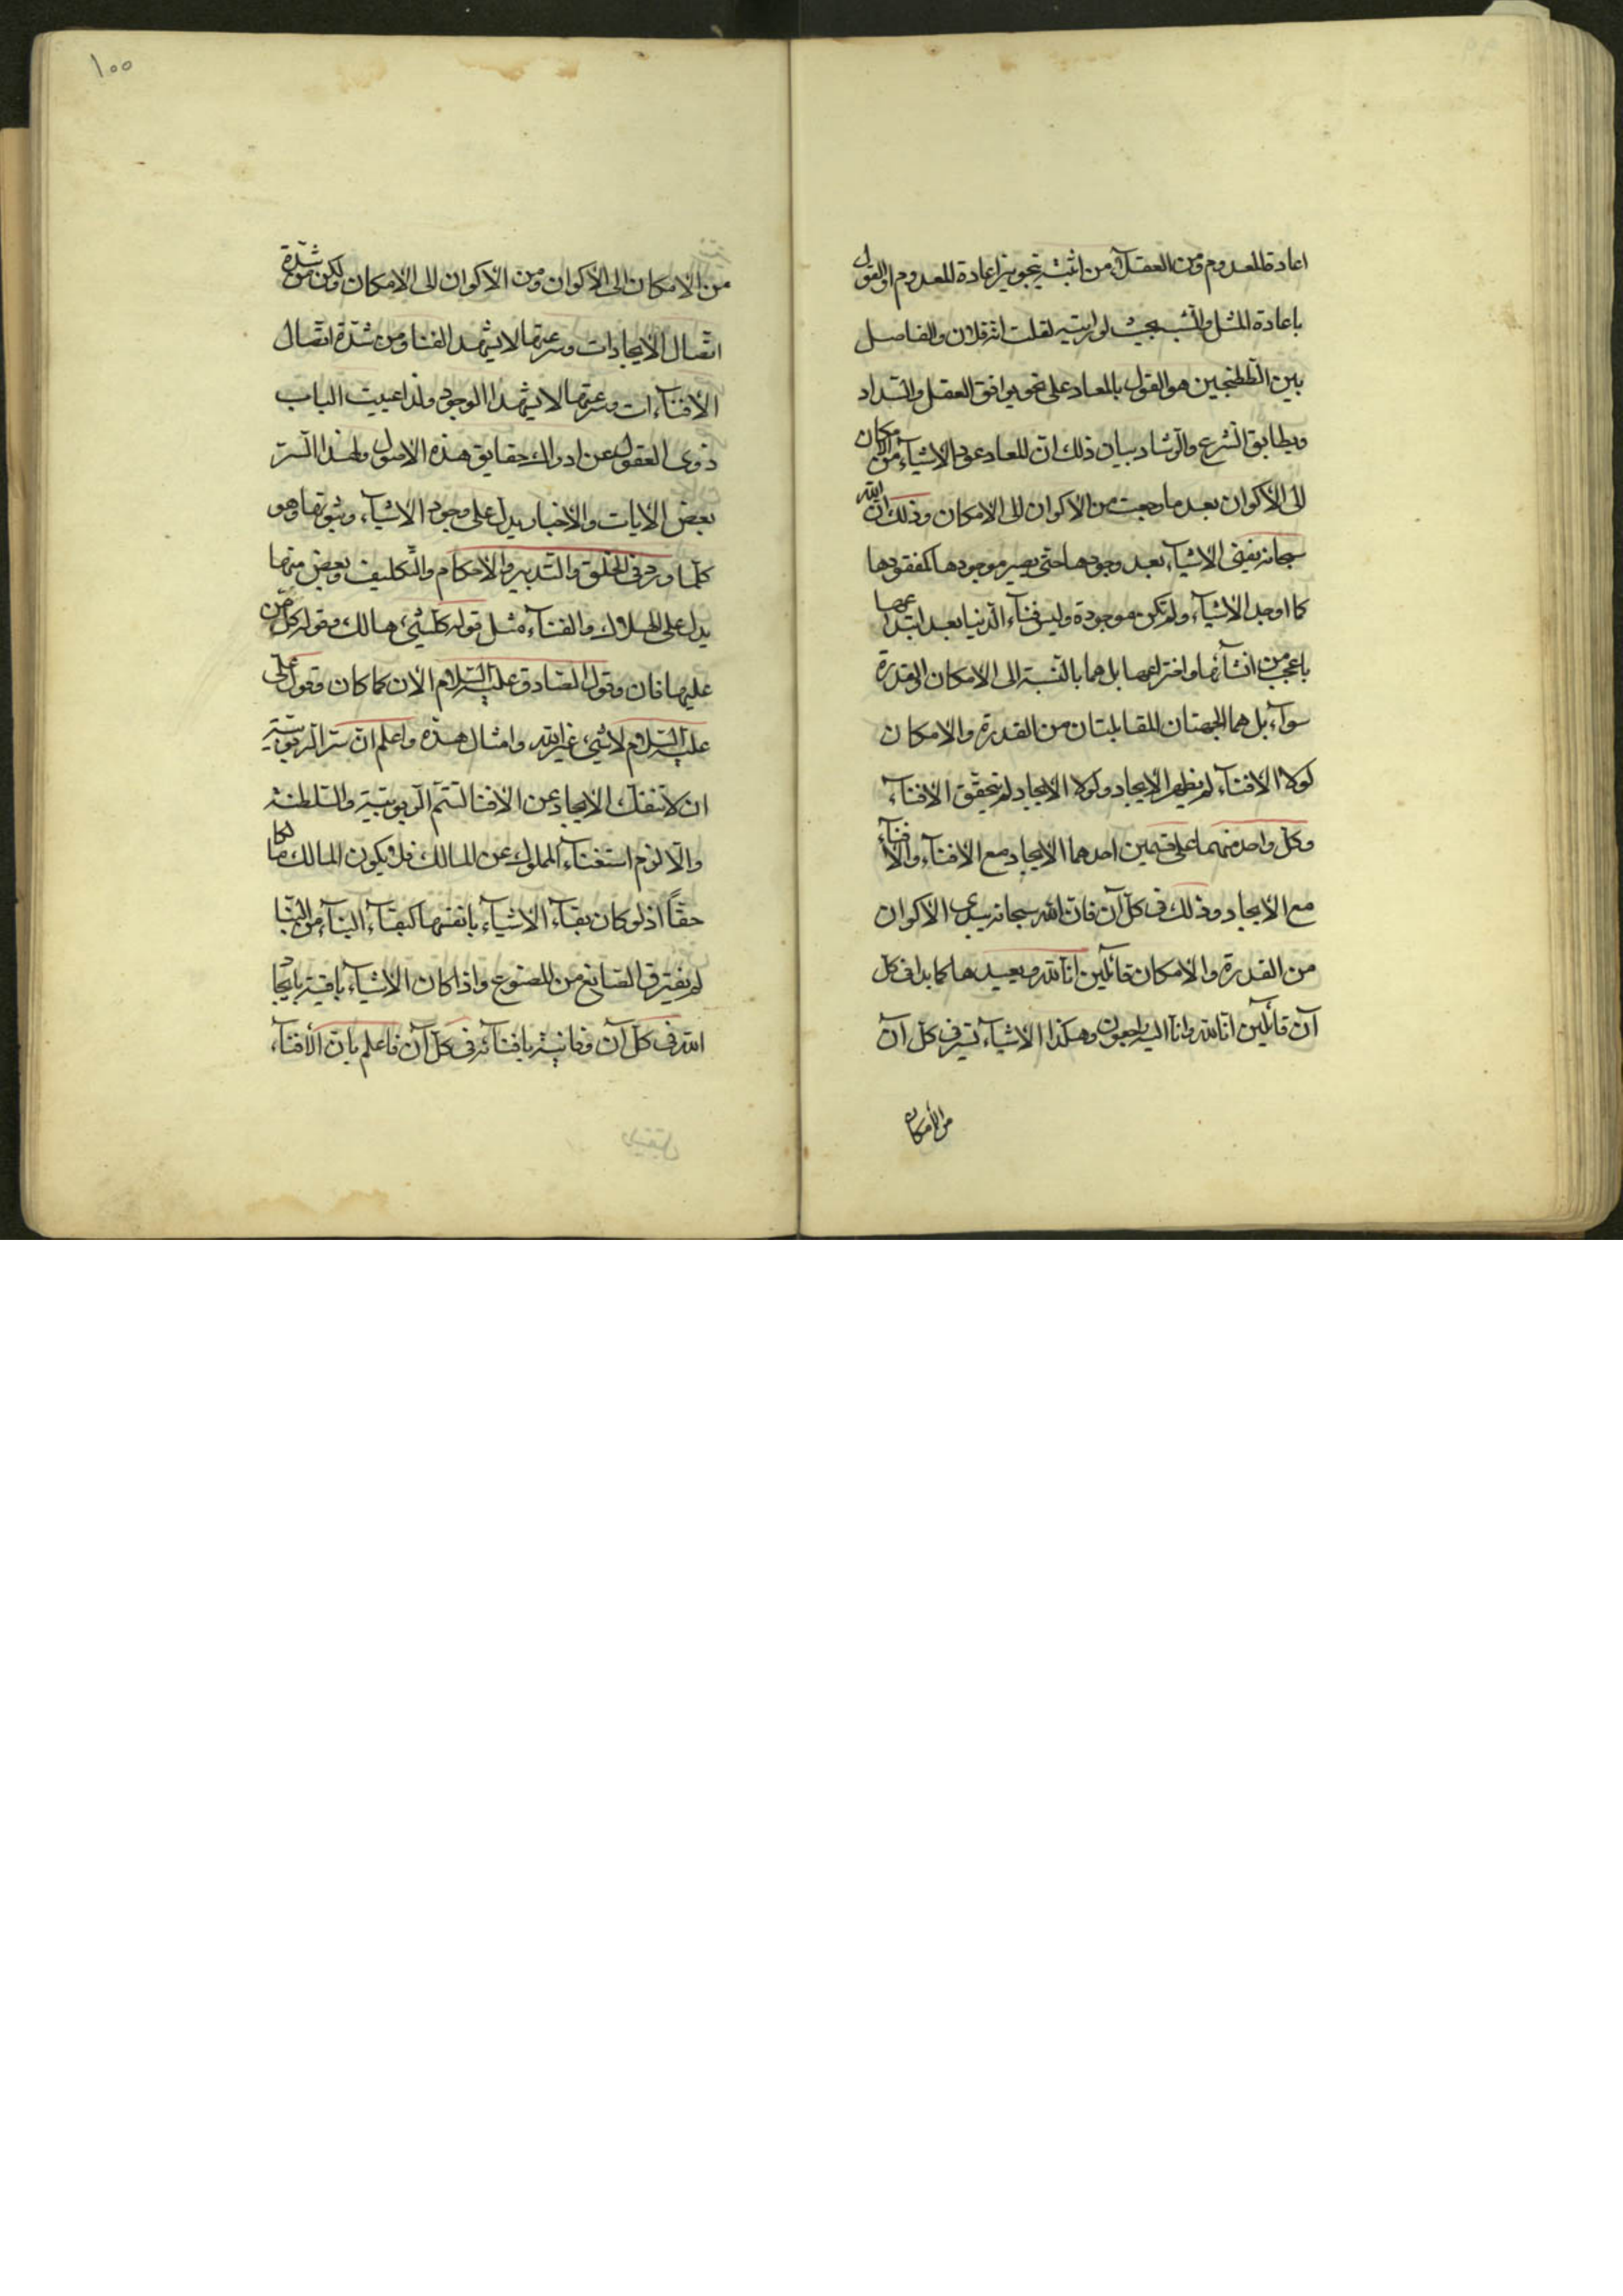 اعادة المعدوم ومن العقلآء من اثبته بتجويز اعادة المعدوم او القول
باعادة المثل والشبه بحيث لو رايته لقلت انه فلان والفاصل
بين الططنجين هو القول بالمعاد على نحو يوافق العقل والسداد
ويطابق الشرع والرشاد بيان ذلك ان المعاد عود الاشيآء من الامكان
الى الاكوان بعد ما رجعت من الاكوان الى الامكان وذلك ان الله
سبحانه يفنى الاشيآء بعد وجودها حتى يصير موجودها كمفقودها
كما اوجد الاشيآء ولم تكن موجودة وليس فنآء الدنيا بعد ابتداعها
باعجب من انشآئها واختراعها بل هما بالنسبة الى الامكان والقدرة
سوآء بل هما الجهتان المقابلتان من القدرة والامكان
لولا الافنآء لم يظهر الايجاد ولولا الايجاد لم يتحقق الافنآء
وكل واحد منهما على قسمين احدهما الايجاد مع الافنآء والافنآء
مع الايجاد وذلك فى كل آن فان الله سبحانه يبدى الاكوان
من القدرة والامكان قآئلين انا لله ويعيدها كما بدا فى كل
آن قآئلين انا لله وانا اليه راجعون وهكذا الاشيآء تترى فى كل آن
من الامكان
١٠٠
من الامكان الى الاكوان ومن الاكوان الى الامكان ولكن من شدة
اتصال الايجادات وسرعتها لا يشهد الفنا ومن شدة اتصال
الافنآءات وسرعتها لا يشهد الوجود ولذا عييت الباب
ذوى العقول عن ادراك حقايق هذه الاصول ولهذا السر
بعض الايات والاخبار يدل على وجود الاشيآء وثبوتها وهو
كلما ورد فى الخلق والتدبير والاحكام والتكليف وبعض منها
يدل على الهلاك والفنآء مثل قوله كل شئ هالك وقوله كل من
عليها فان وقول الصادق عليه السلام الان كما كان وقول على
عليه السلام لا شئ غير الله وامثال هذه واعلم ان سر الربوبية
ان لا تنفك الايجاد عن الافنا لتتم الربوبية والسلطنة
والا لزم استغنآء المملوك عن المالك فلا يكون المالك مالكا
حقاً اذ لو كان بقآء الاشيآء بانفسها كبقآء البنآء من البنّا
لم يفترق الصانع من المصنوع واذا كان الاشيآء باقية بايجاد
الله فى كل آن وفانية بافنآئه فى كل آن فاعلم بان الافنآء